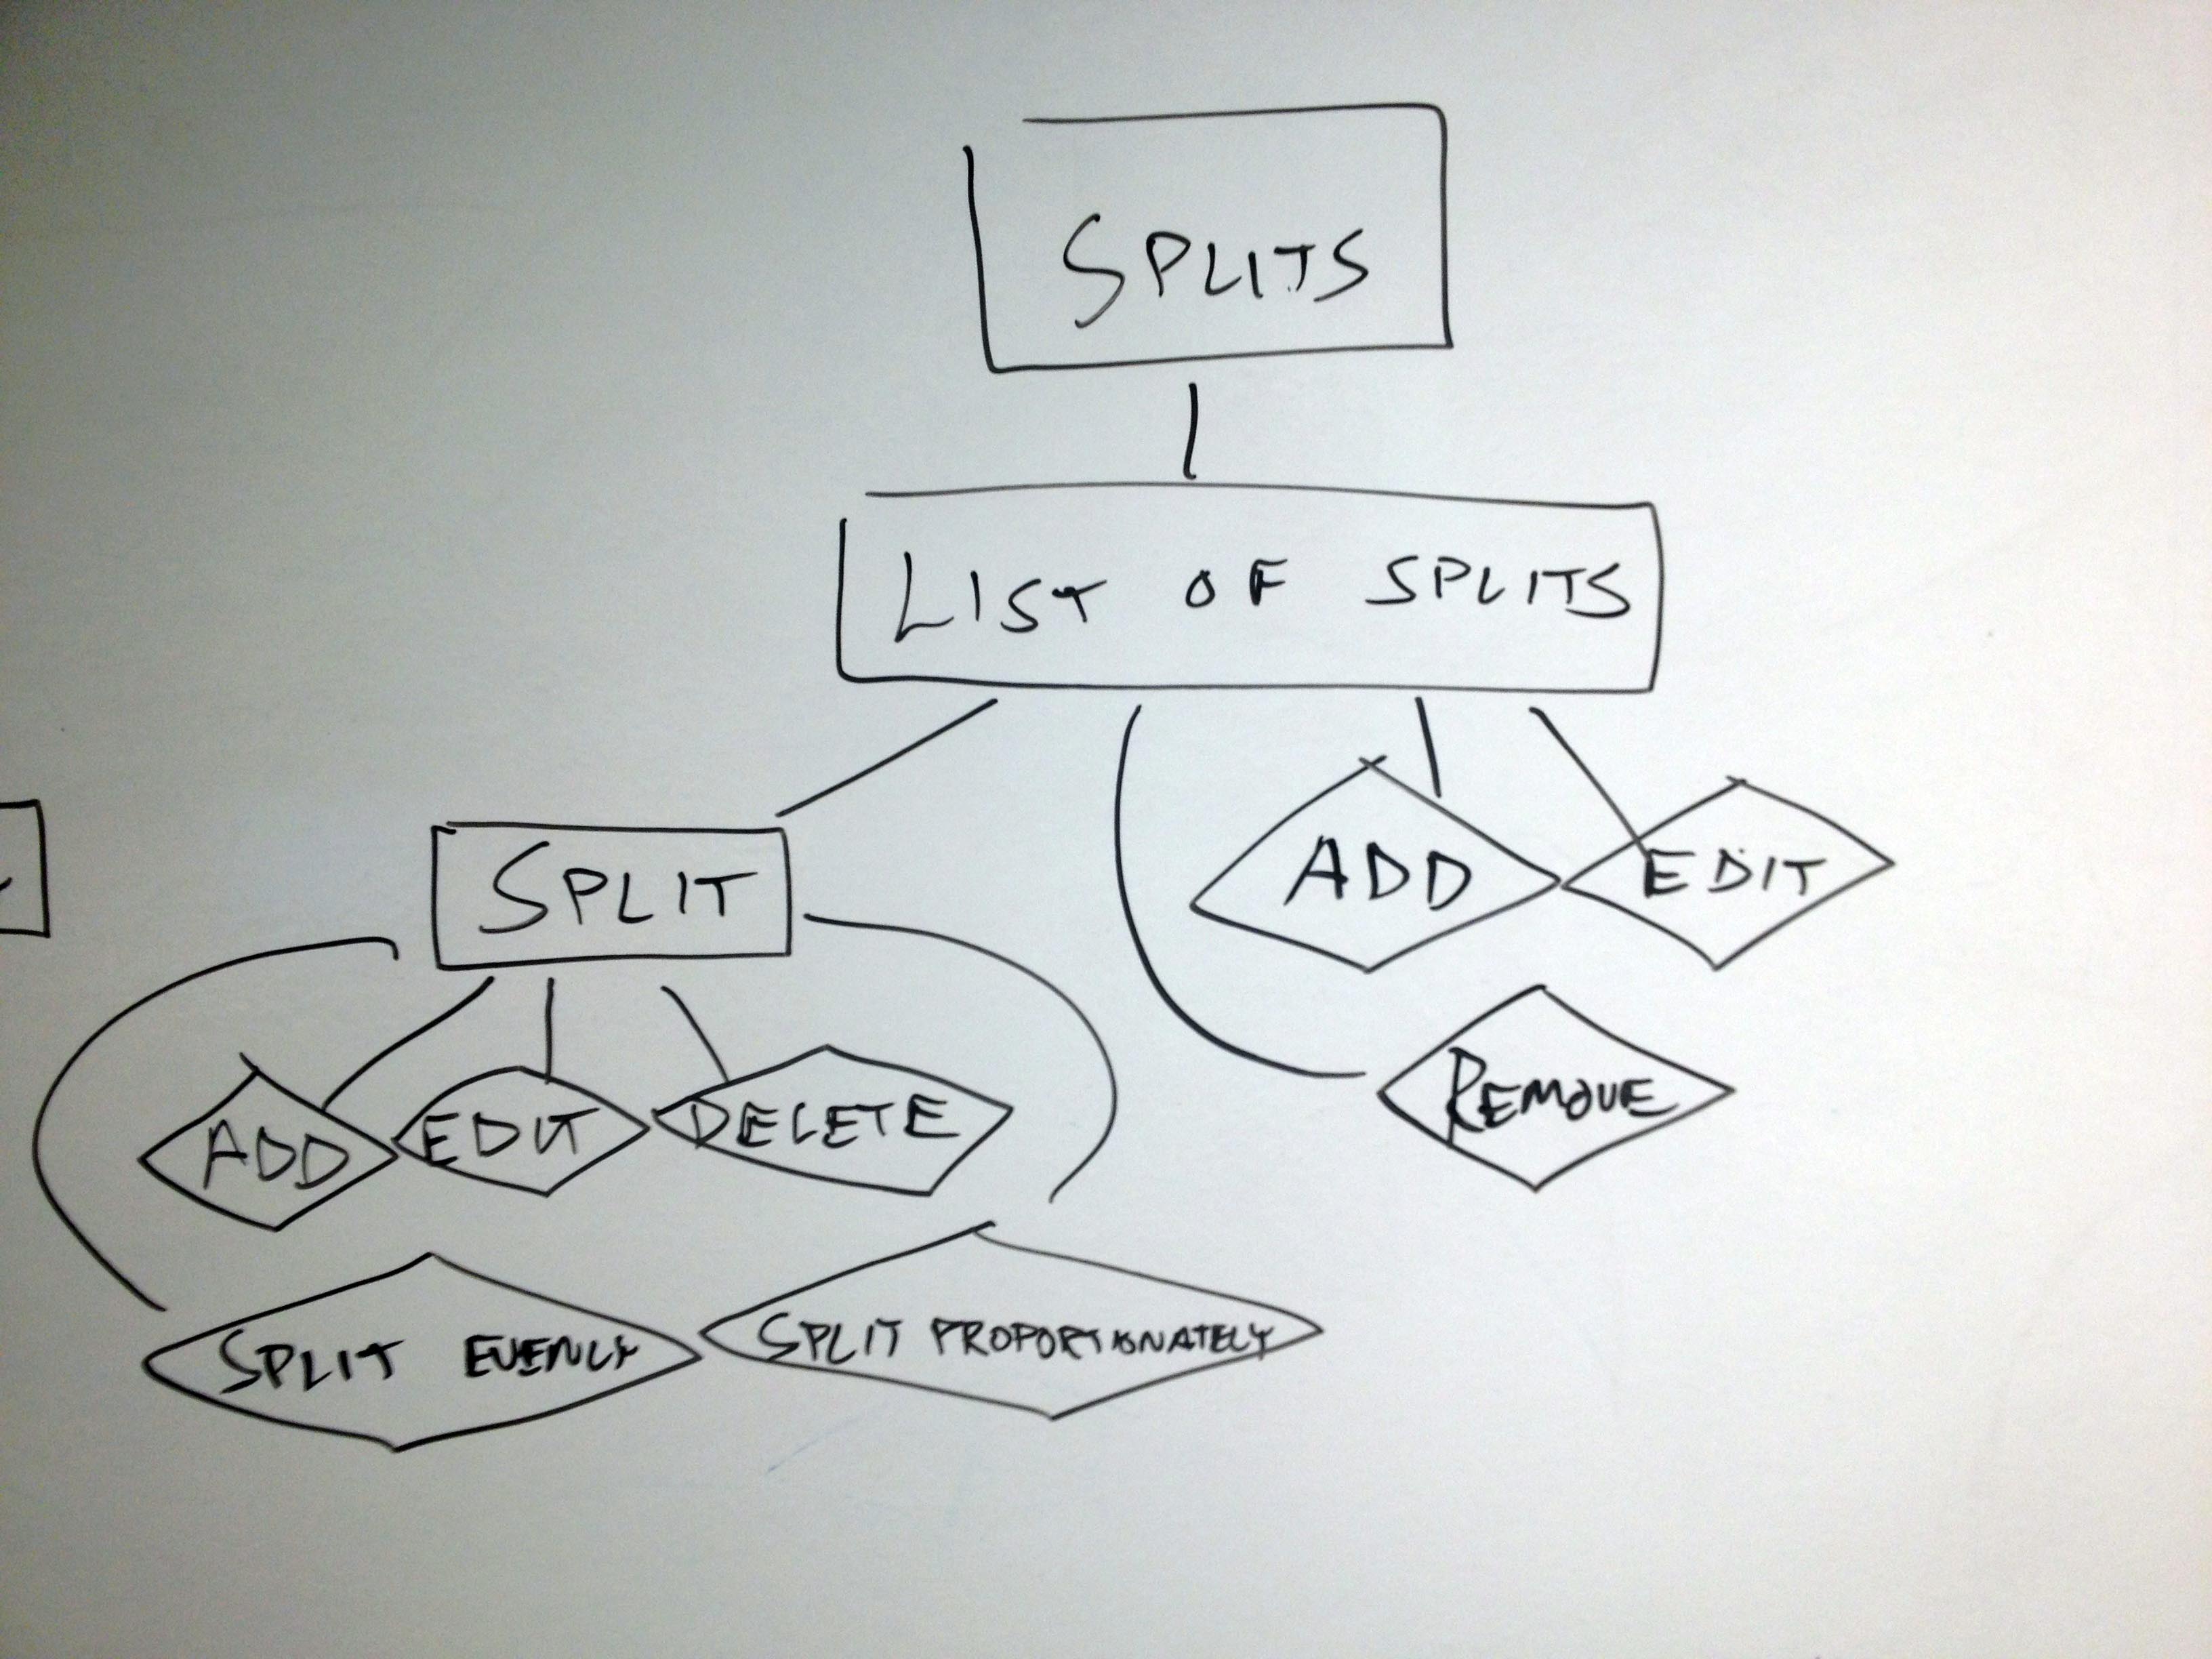 SPLITS
LIST OF SPLITS
SPLIT
ADD
EDIT
ADD
EDIT
DELETE
REMOVE
SPLIT EVENLY
SPLIT PROPORTIONATELY